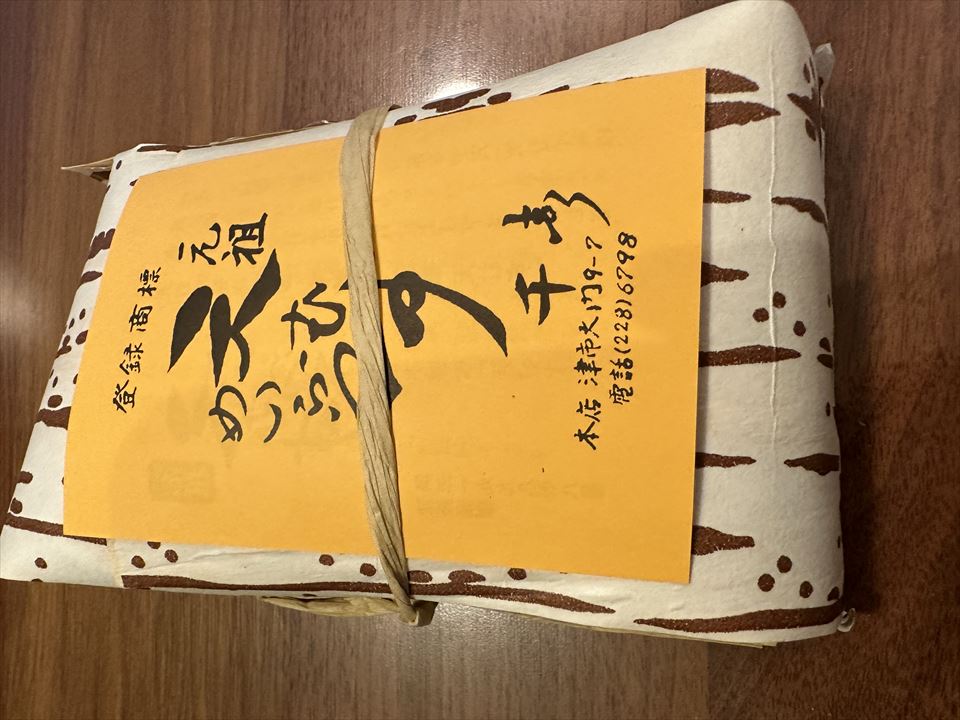 登録商標
元祖
めいぶつ
天むす
千寿
本店 津市大門9-7
電話(228)6798